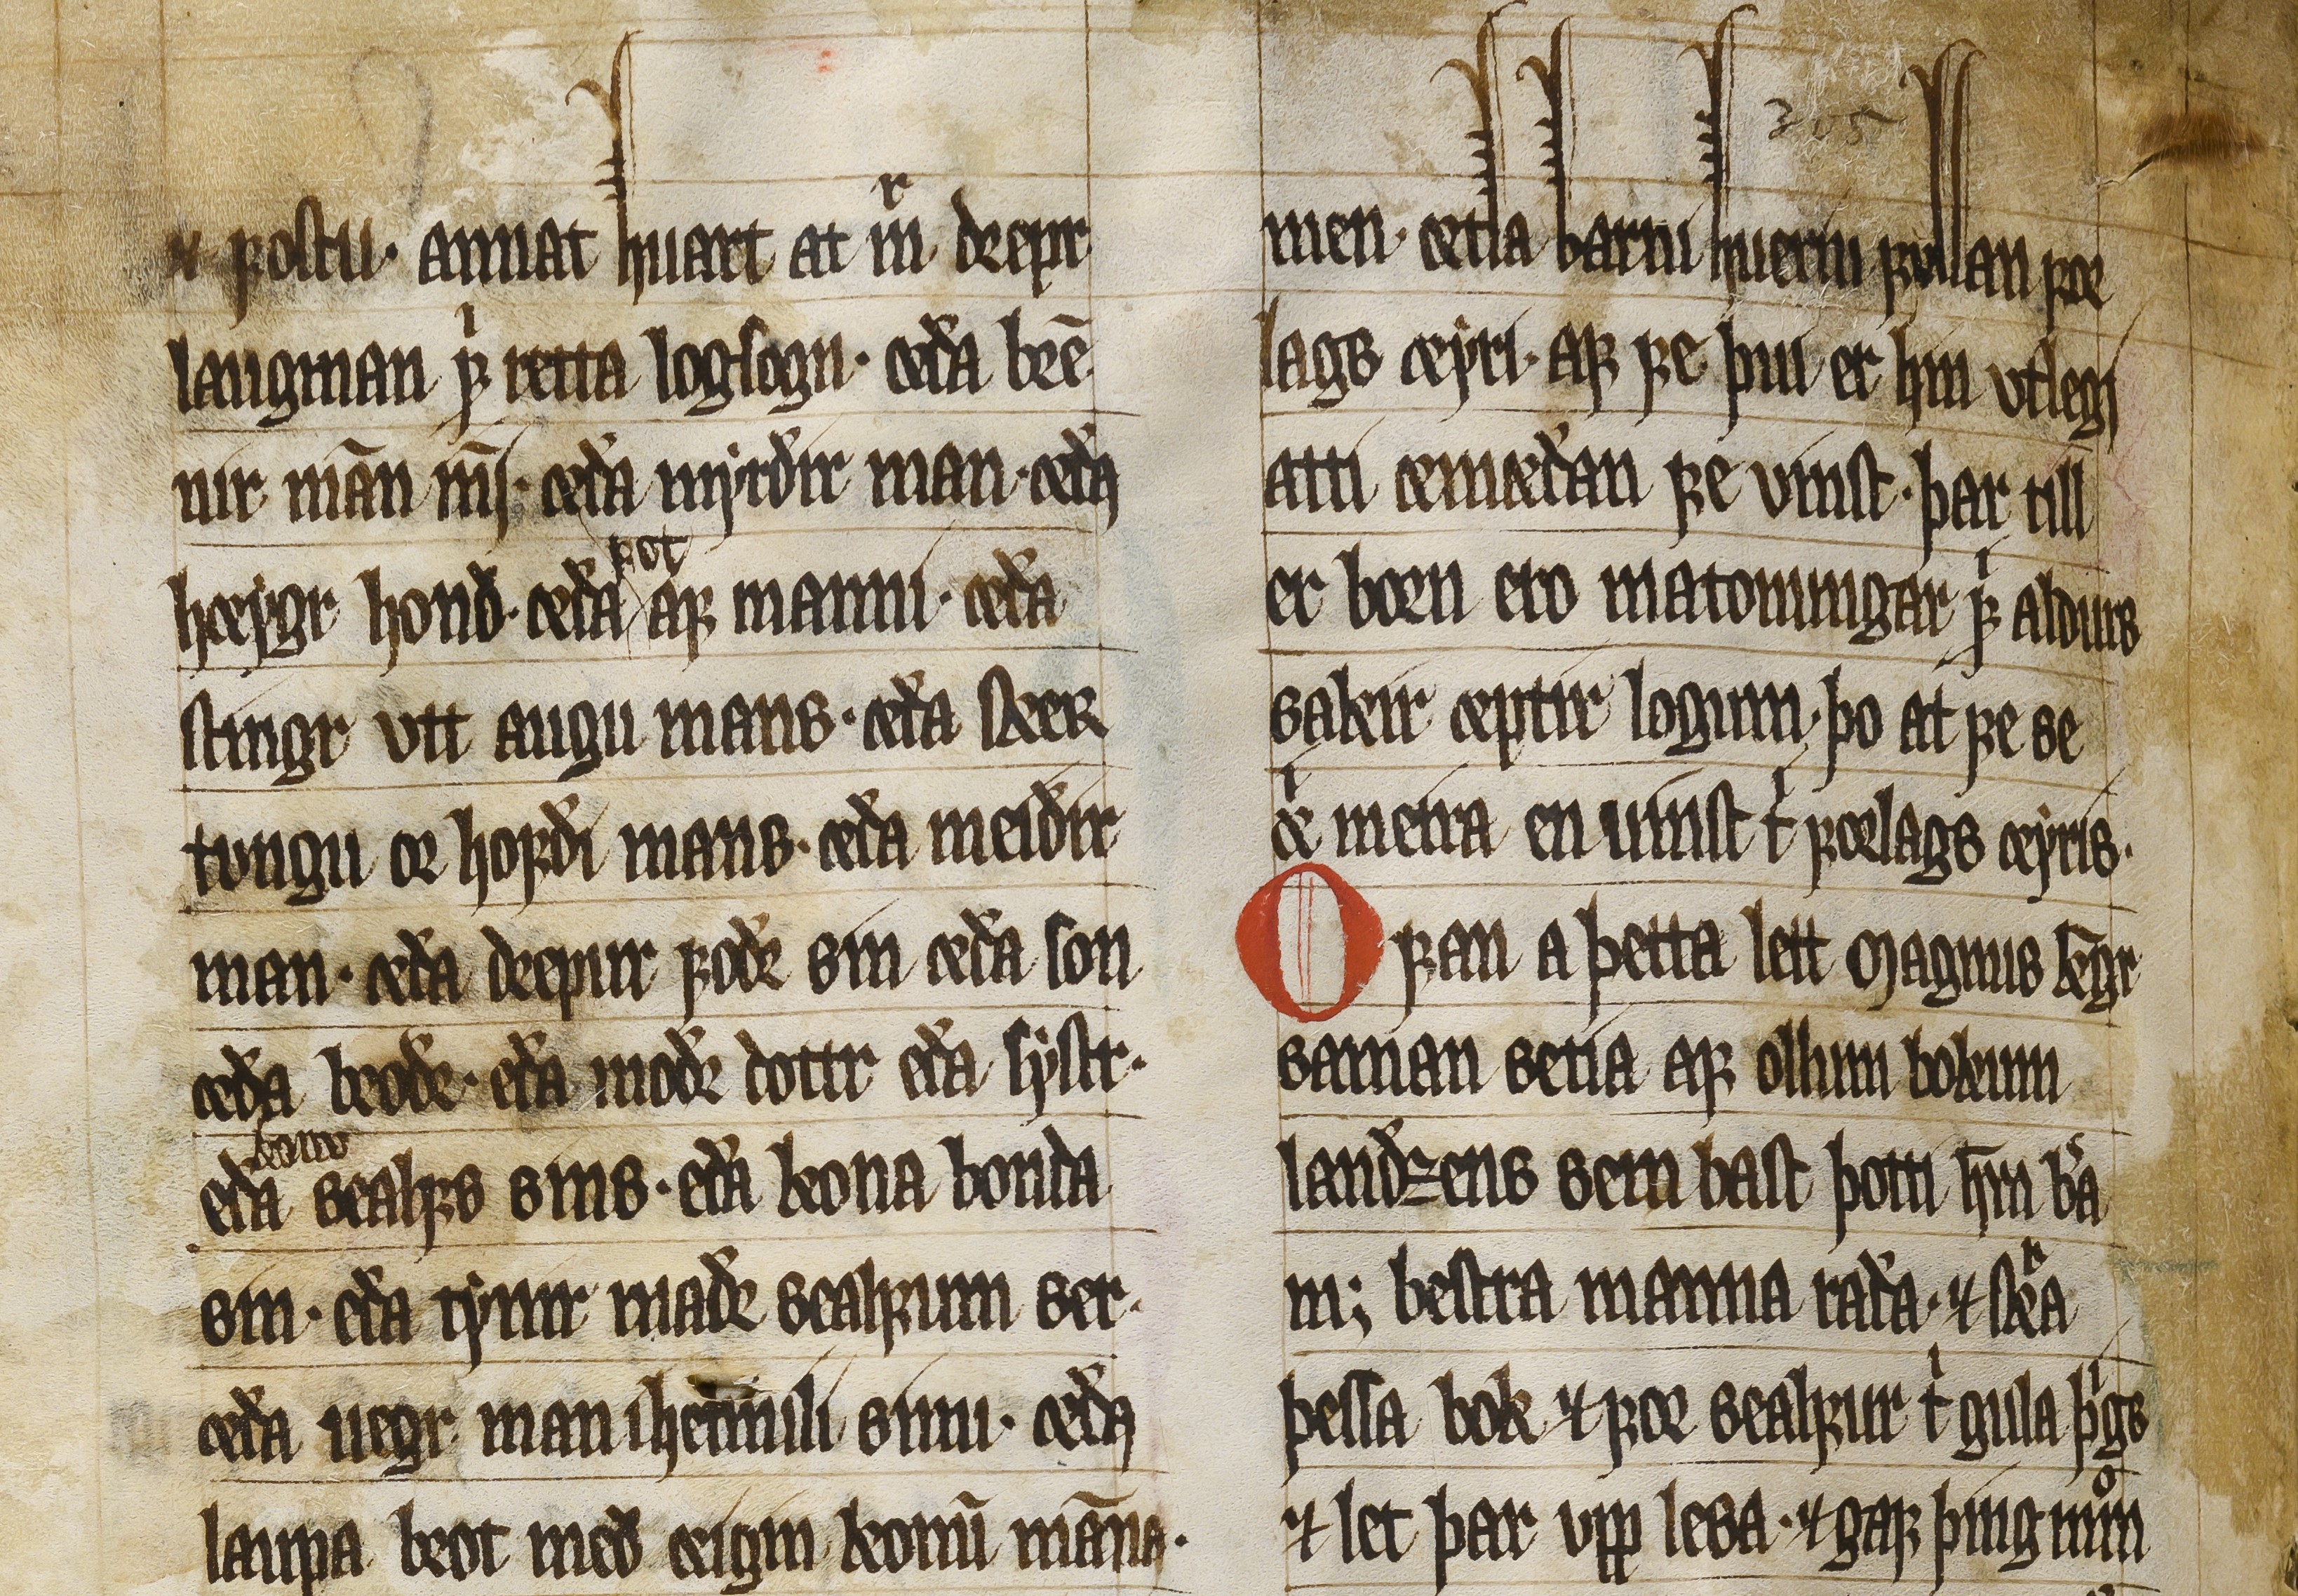 ⁊ ꝼoſtu · annat huart at mͬ drepr
laugman ꝼͥ retta logſogn · æða bren̄
nir man̄ in̄j · æða myrðir man · æða
hœygr hond · æða ꝼot aꝼ manni · æða
ſtingr vtt augu mans · æða ſkerr
tungu or hoꝼði mans · æða meiðir
man · æða drepur ꝼoðr sin æða ſon
æða broðr · eða moðr dottr eða ſyſtr ·
eða konu scalꝼs sins · eða kona bonda
sin · eða rynir maðr scalꝼum ser ·
æða uegr man i heimili sinu · æða
laupa brot með æigin konu man̄a ·
305
men · ætla barni huerin ꝼullan ꝼor
lags œyri · aꝼ ꝼe þui er hin vtlegi
atti æmæðan ꝼe vinſt · þar till
er born ero matonungar ꝼͥ aldurs
saker æptir logum · þo at ꝼe se
æͥ meira en uinſt tͥ ꝼorlags œyris ·
O ꝼan a þetta lett magnus kōgr
saman setia aꝼ ollum bokum
landꝣens sem baſt þotti hm̄ bͤa
m; beſtra manna raða · ⁊ ſkͬa
þeſſa bok ⁊ ꝼor scalꝼur tͥ gula þīgs
⁊ let þar vpp lesa · ⁊ gaꝼ þingmͦm